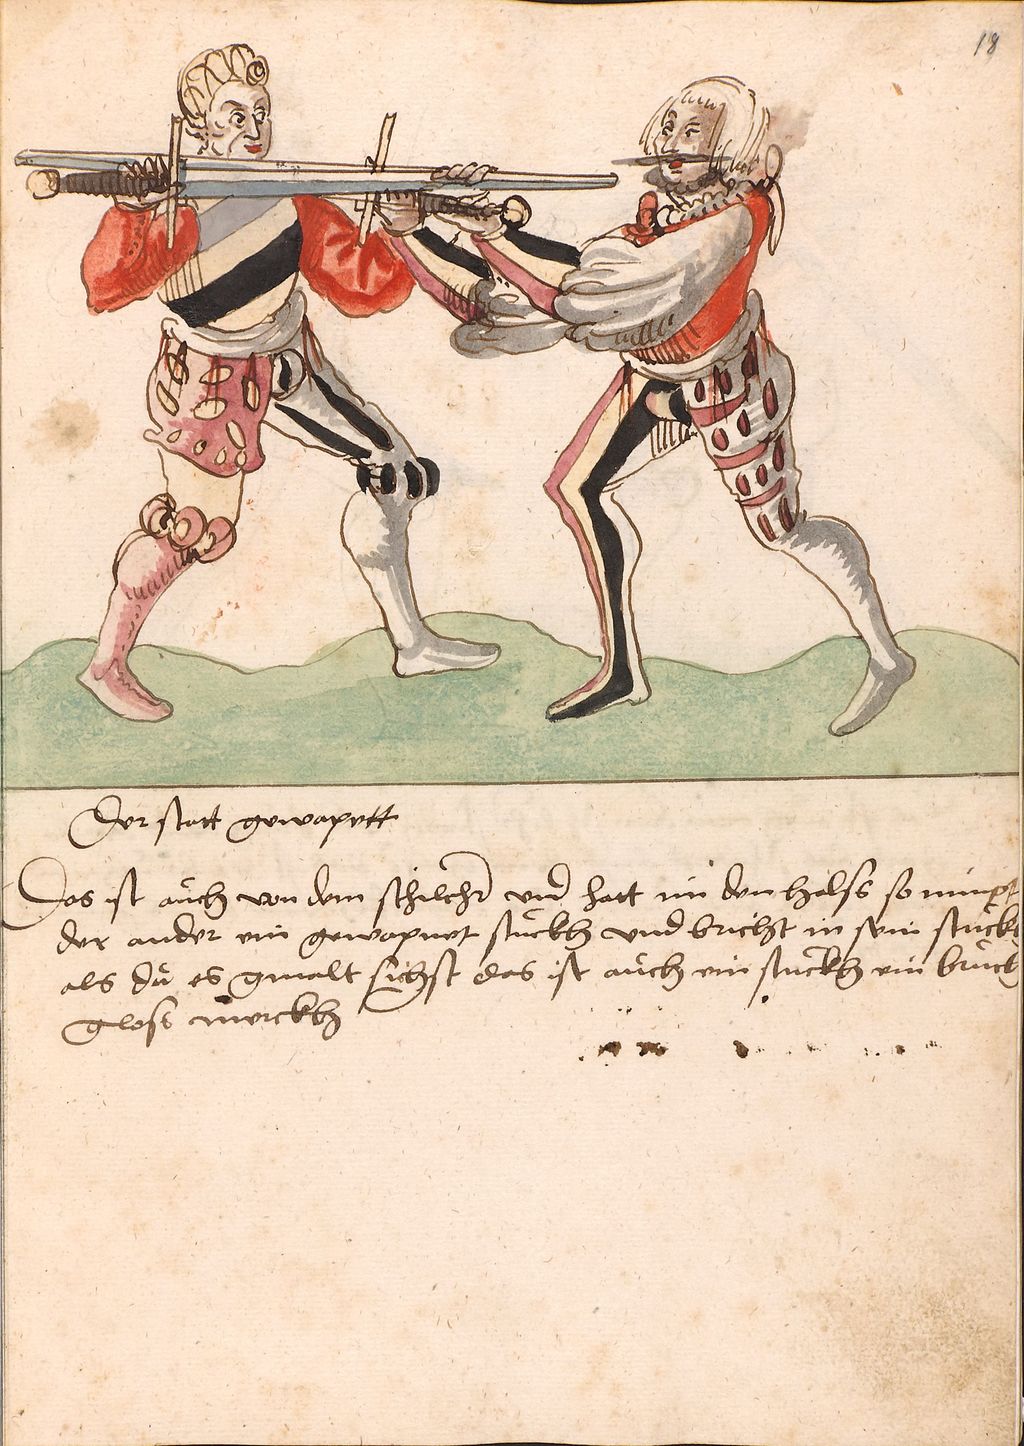 18
Der statt gewapett
Das ist auch von dem schilchr und hatt im den halss so nimpt
der ander ein gewapnet stuckh und bricht in sein stuckh
als da es gmalt sichst das ist auch ein stuckh ein bruch
gloss merckh